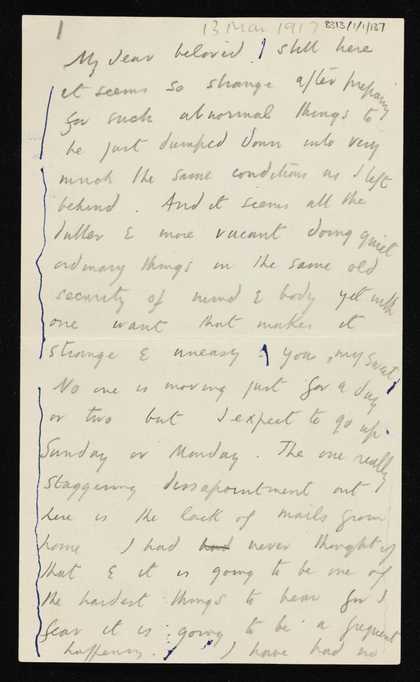 1
13 Mar 1917 8313/1/1/137
My dear beloved. I still here
it seems so strange after preparing
for such abnormal things to
be just dumped down into very
much the same conditions as I left
behind. And it seems all the
duller & more vacant doing quiet
ordinary things in the same old
security of mind & body yet with
one want that makes it
strange & uneasy – you, my sweet
No one is moving just for a day
or two but I expect to go up
Sunday or Monday. The one really
staggering dissapointment out
here is the lack of mails from
home I had had never thought of
that & it is going to be one of
the hardest things to bear for I
fear it is going to be a frequent
happening. I have had no